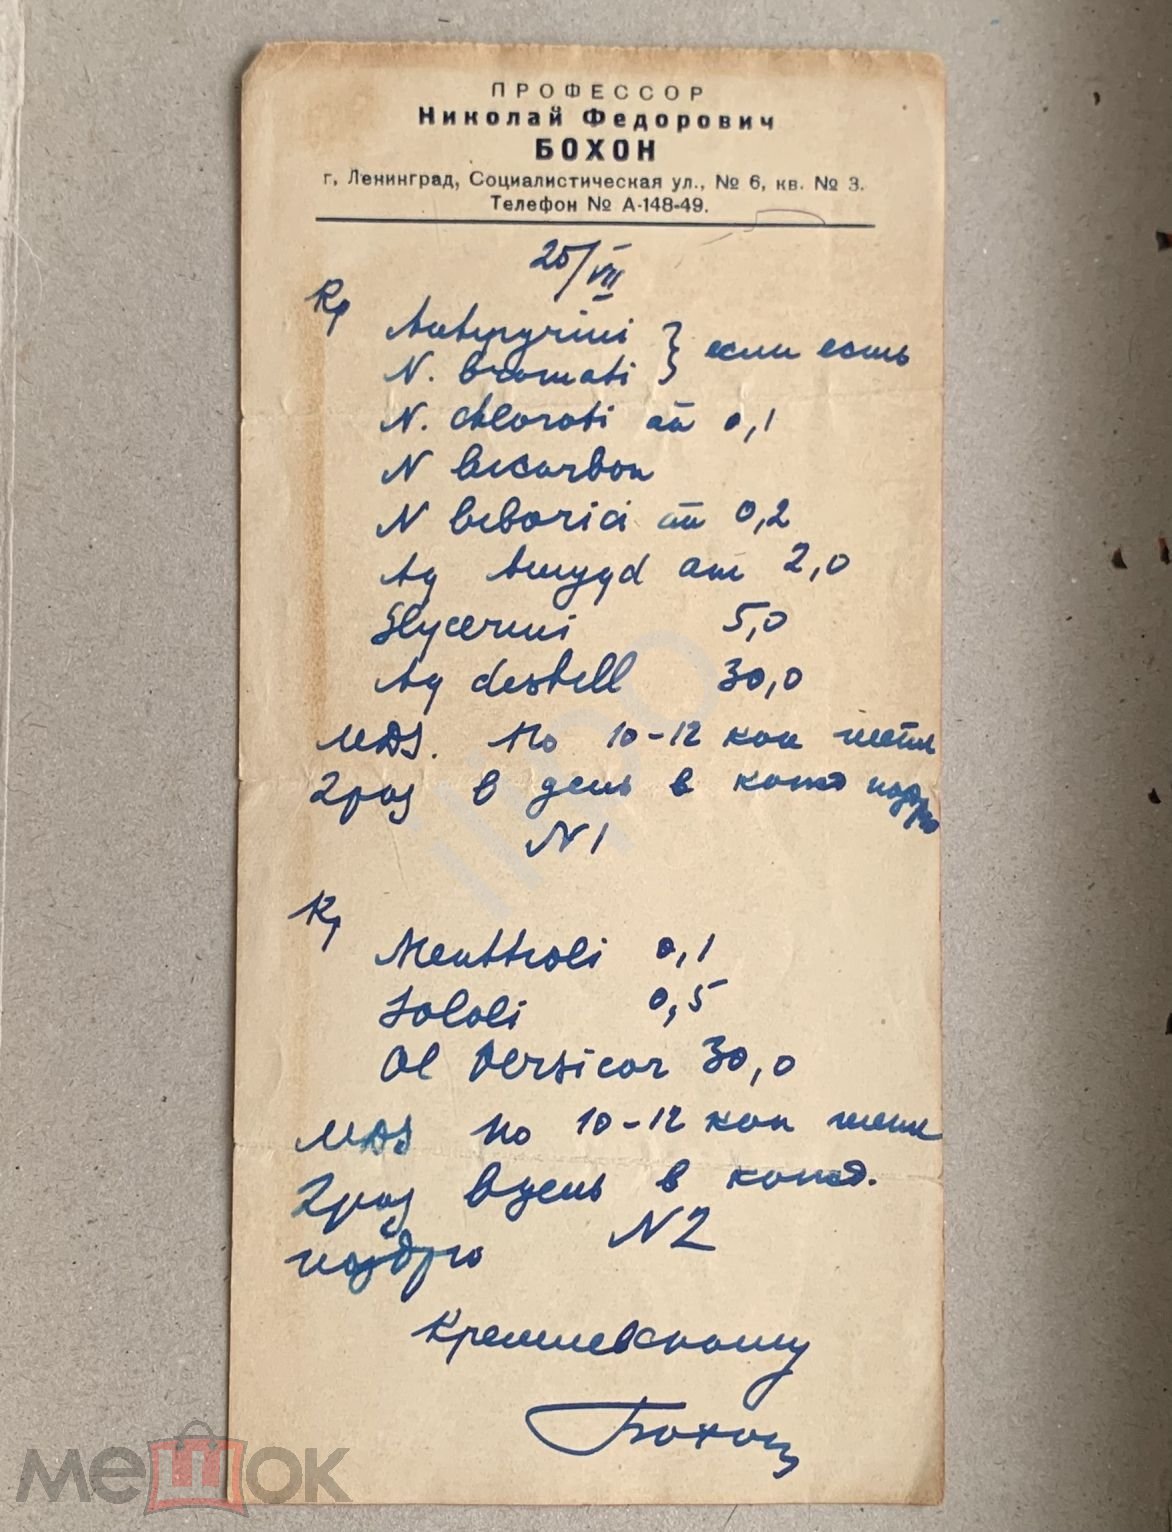 ПРОФЕССОР
Николай Федорович
БОХОН
г. Ленинград, Социалистическая ул., № 6, кв. № 3.
Телефон № А-148-49.
25/VII
Rp
Antipyrini
N. bromati } если есть
N. chlorati aa 0,1
N bicarbon
N biborici aa 0,2
Aq Amygd am 2,0
Glycerini 5,0
Aq destill 30,0
MDS. По 10-12 кап тепл
2 раз в день в кажд ноздрю
N1
Rp
Mentholi 0,1
Saloli 0,5
Ol Persicor 30,0
MDS По 10-12 кап тепл
2 раз в день в кажд.
ноздрю N2
Кремлевскому
Бохон
мешок